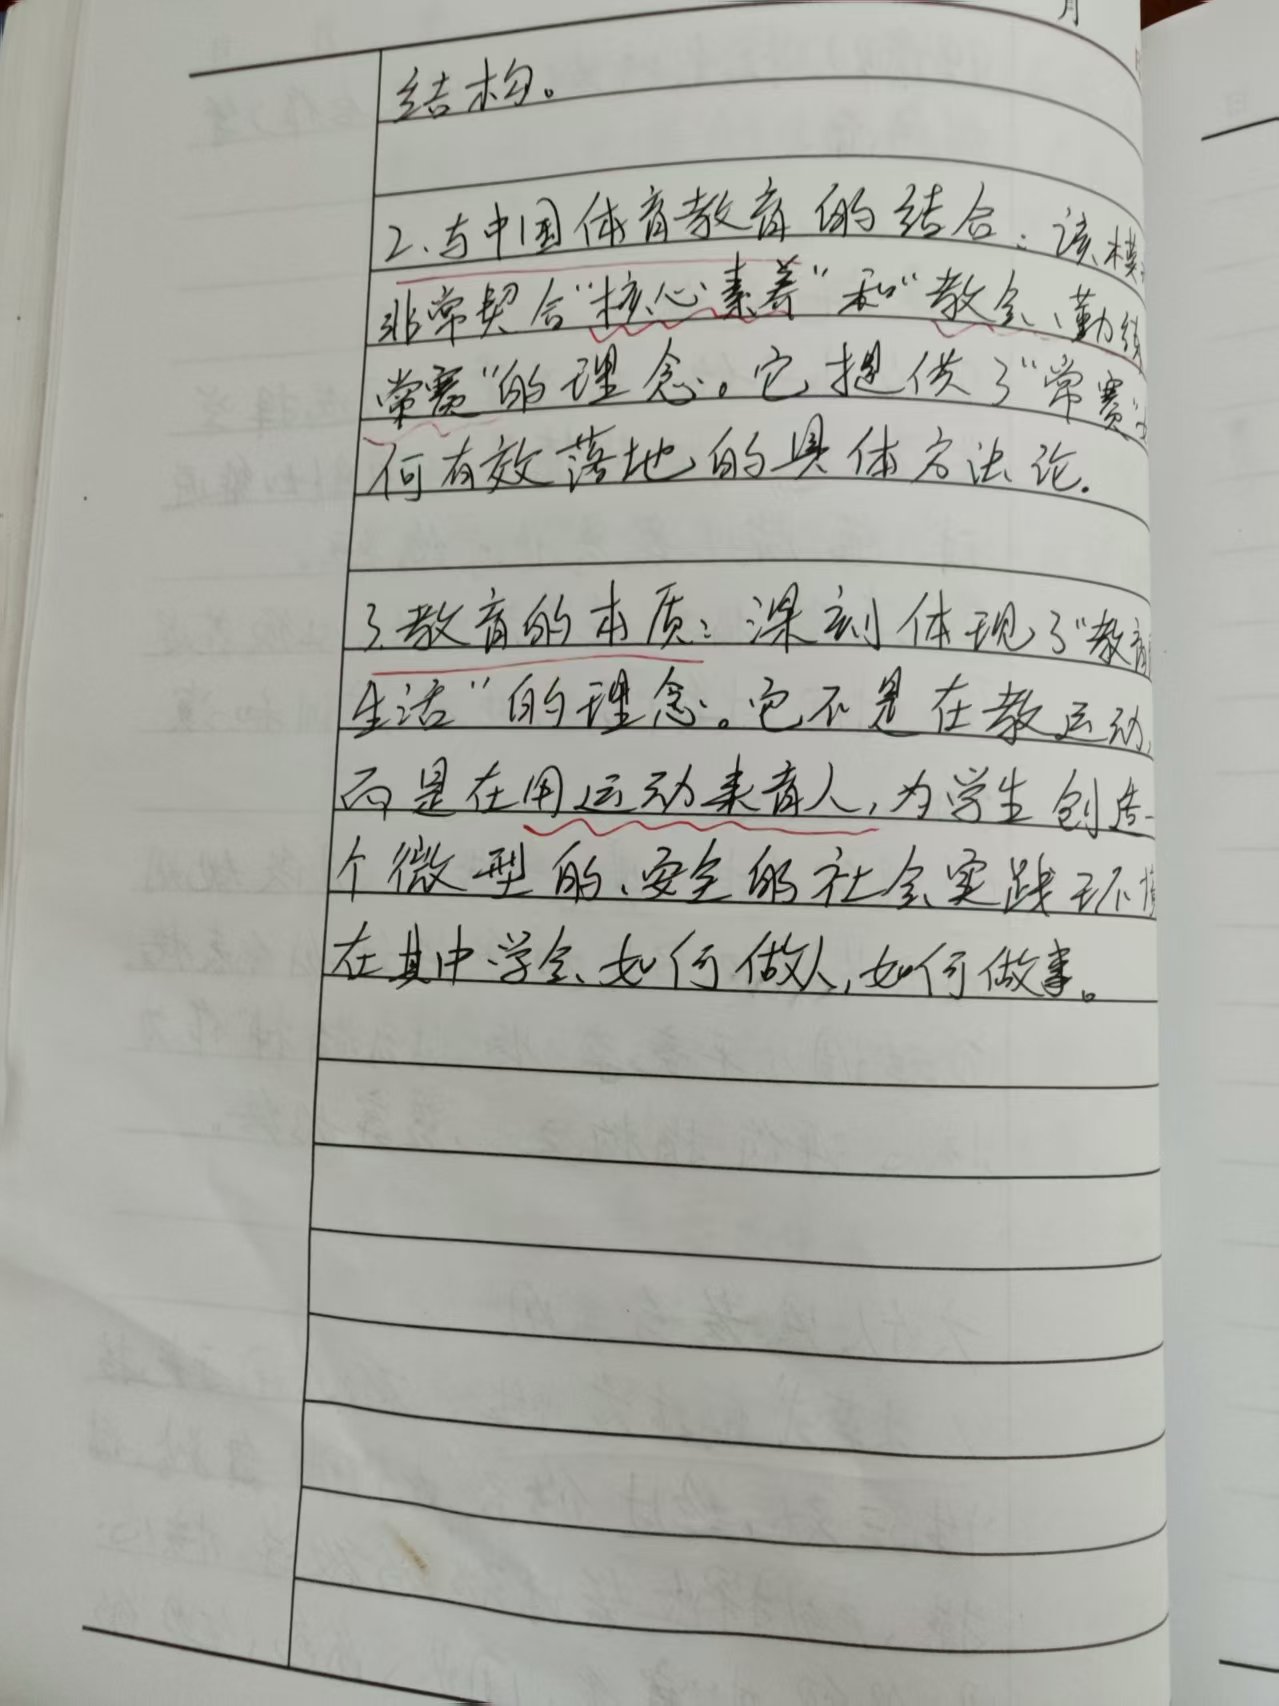 月
结构。
2.与中国体育教育的结合：该模
非常契合“核心素养”和“教会、勤练
常赛”的理念。它提供了“常赛”
何有效落地的具体方法论.
3.教育的本质：深刻体现了“教育
生活”的理念。它不是在教运动,
而是在用运动来育人,为学生创造一
个微型的、安全的社会实践环境
在其中学会、如何做人,如何做事。